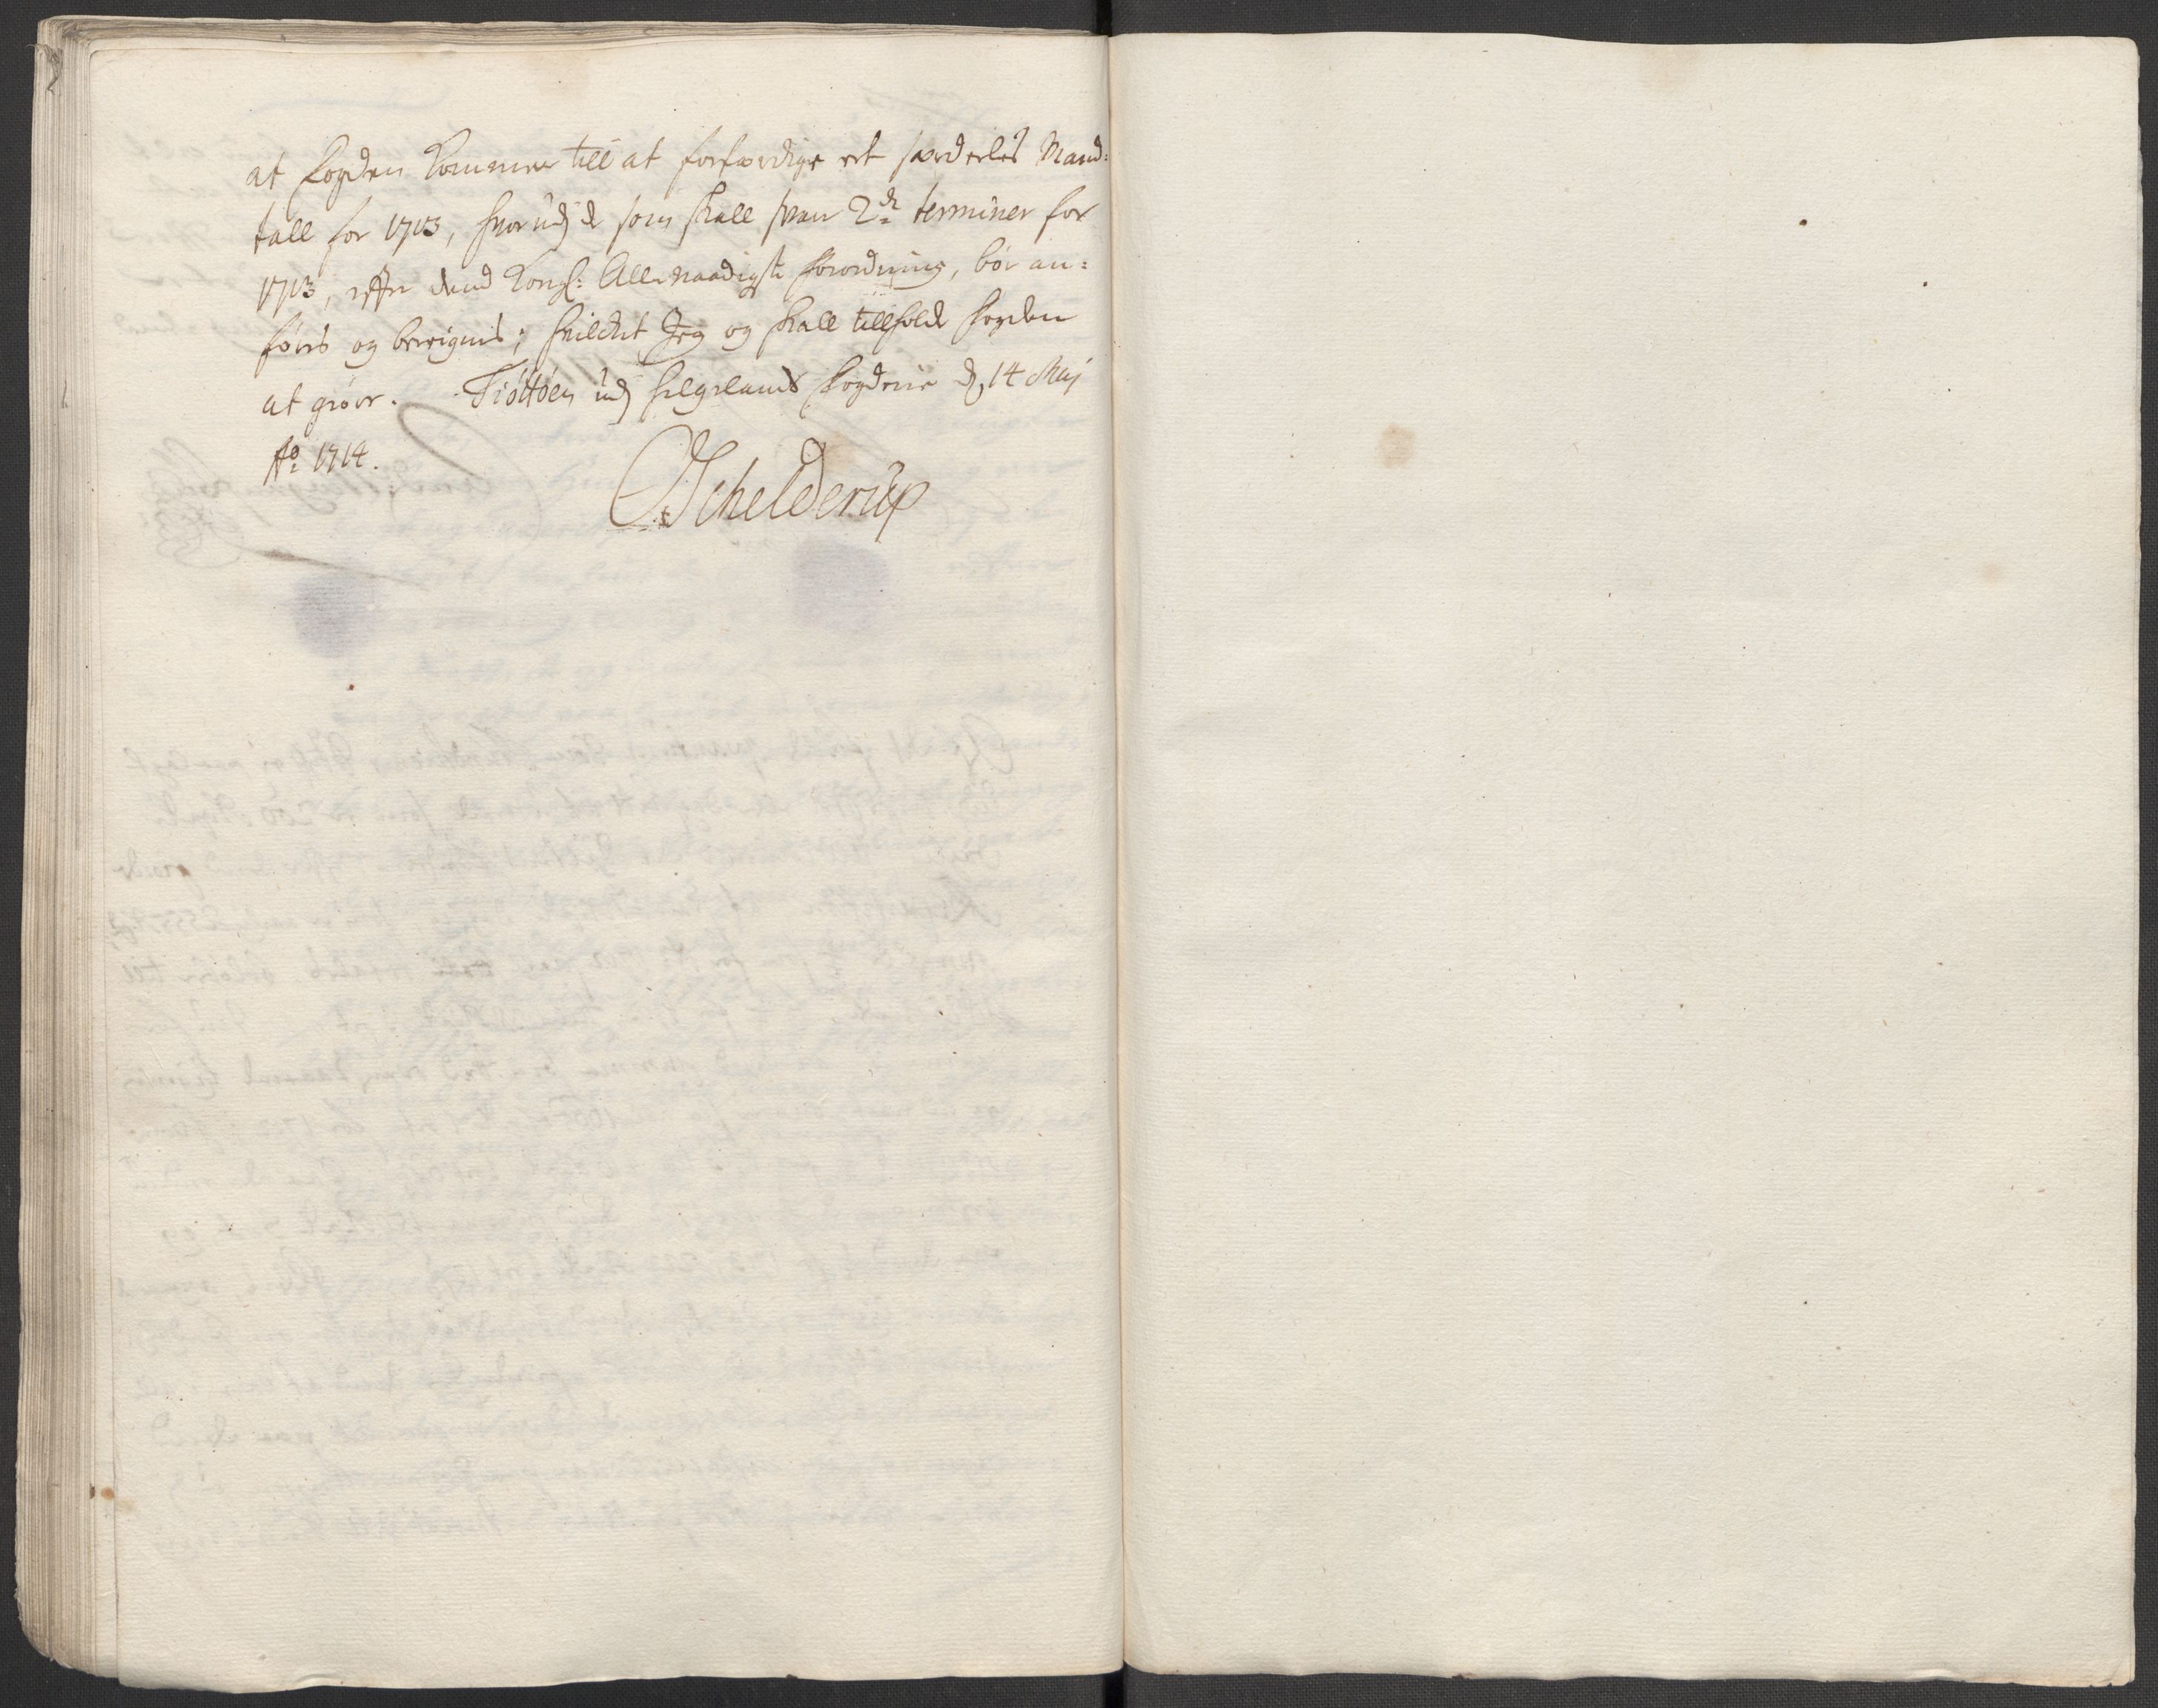 at Fogden kommer till at forferdige et særdeles Mand-
tall for 1713, hvorudj de som skall svare 2de terminer for
1713, efter dend Kongl: Allernaadigste forordning, bør an-
føris og beregnis; hvilchet Jeg og skall tillholde fogden
at giøre. Tiøttøen udj Helgelands Fogderie d, 14 Maj
Ao 1714.
Schelderup